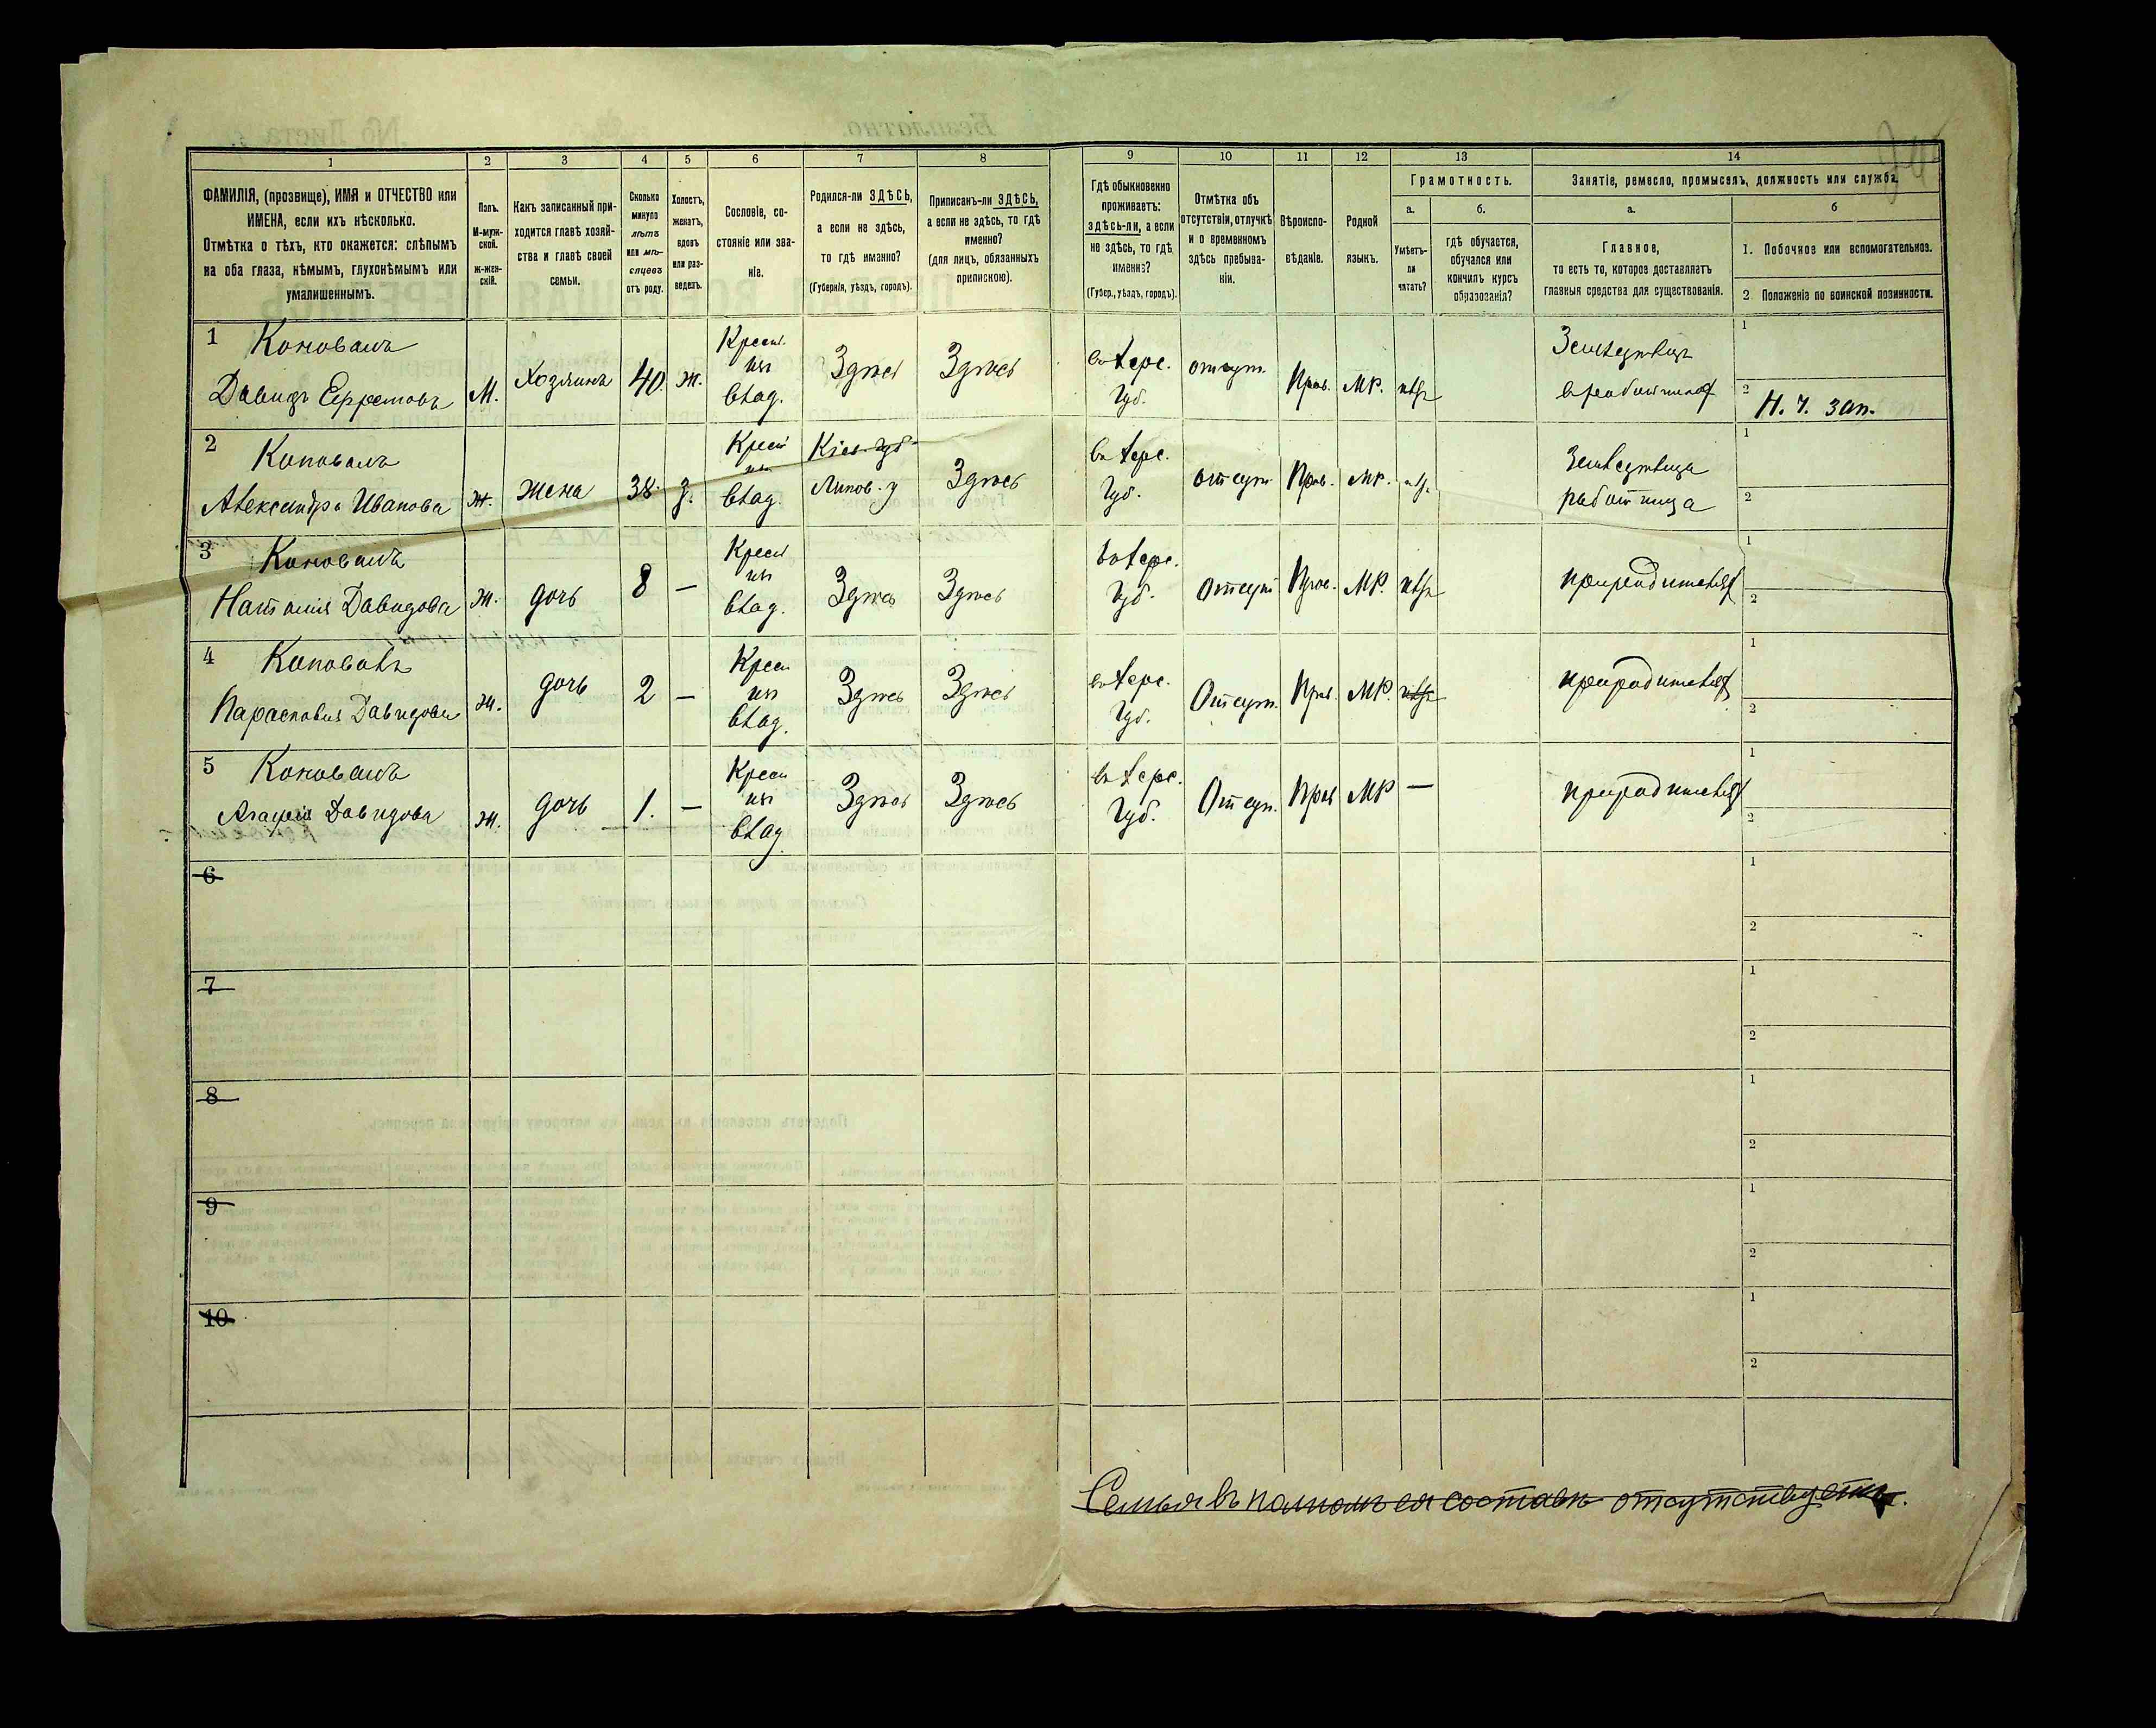 1 2 3 4 5 6 7 8 9 10 11 12 13 14
ФАМИЛІЯ, (прозвище), ИМЯ и ОТЧЕСТВО или
ИМЕНА, если ихъ нѣсколько.
Отмѣтка о тѣхъ, кто окажется: слѣпымъ
на оба глаза, нѣмымъ, глухонѣмымъ или
умалишеннымъ.
Полъ.
М-муж-
ской.
ж-жен-
скій.
Какъ записанный при-
ходится главѣ хозяй-
ства и главѣ своей
семьи.
Сколько
минуло
лѣтъ
или мѣ-
сяцевъ
отъ роду.
Холостъ,
женатъ,
вдовъ
или раз-
веденъ.
Сословіе, со-
стояніе или зва-
ніе.
Родился-ли ЗДѢСЬ,
а если не здѣсь,
то гдѣ именно?
(Губернія, уѣздъ, городъ).
Приписанъ-ли ЗДѢСЬ,
а если не здѣсь, то гдѣ
именно?
(для лицъ, обязанныхъ
припискою).
Гдѣ обыкновенно
проживаетъ:
здѣсь-ли, а если
не здѣсь, то гдѣ
именно?
(Губер., уѣздъ, городъ).
Отмѣтка объ
отсутствіи, отлучкѣ
и о временномъ
здѣсь пребыва-
ніи.
Вѣроиспо-
вѣданіе.
Родной
языкъ.
Грамотность.
а.
Умѣетъ-
ли
читать?
б.
гдѣ обучается,
обучался или
кончилъ курсъ
образованія?
Занятіе, ремесло, промыселъ, должность или служба.
а.
Главное,
то есть то, которое доставляетъ
главныя средства для существованія.
б
1. Побочное или вспомогательное.
2 Положеніе по воинской повинности.
1 Коновалъ
Давидъ Ефремовъ
М.
Хозяинъ
40.
ж.
Крест.
из
влад.
Здѣсь
Здѣсь
Губ.
отсут.
Прав.
МР.
нѣтъ
1
2 Н. Ч. зап.
2 Коновалъ
Александра Иванова
ж.
жена
38.
з.
Крест
из
влад.
Кіев. губ
Липов. у
Здѣсь
Губ.
отсут
Прав.
МР.
нѣтъ
работница
1
2
3 Коновалъ
Наталія Давидова
ж.
дочь
8
—
Крест
из
влад.
Здѣсь
Здѣсь
Губ.
Отсут
Прав.
МР.
нѣтъ
1
2
4 Коновалъ
Парасковія Давидова
ж.
дочь
2
—
Крест
из
влад.
Здѣсь
Здѣсь
Губ.
Отсут.
Прав.
МР.
нѣтъ
1
2
5 Коновалъ
Давидова
ж.
дочь
1.
—
Крест
из
влад.
Здѣсь
Здѣсь
Губ.
Отсут.
Прав
МР
—
1
2
6
1
2
7
1
2
8
1
2
9
1
2
10
1
2
Семья въ полномъ ея составѣ отсутствуетъ.